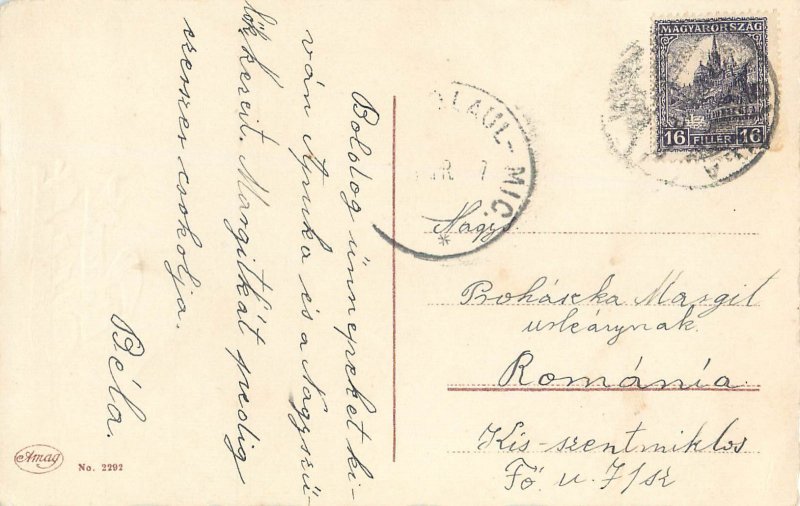 Boldog ünnepeket ki-
ván Anuka és a Nagyszü-
lők kezeit. Margitkát pedig
ezerszer csokolja.
Béla.
Amag
No. 2292
MAGYARORSZÁG
16 FILLÉR 16
LAUL-MIC.
7
Nagys
Prohászka Margit
urleánynak.
Románia
Kis-szentmiklos
Fő u. 7/sz